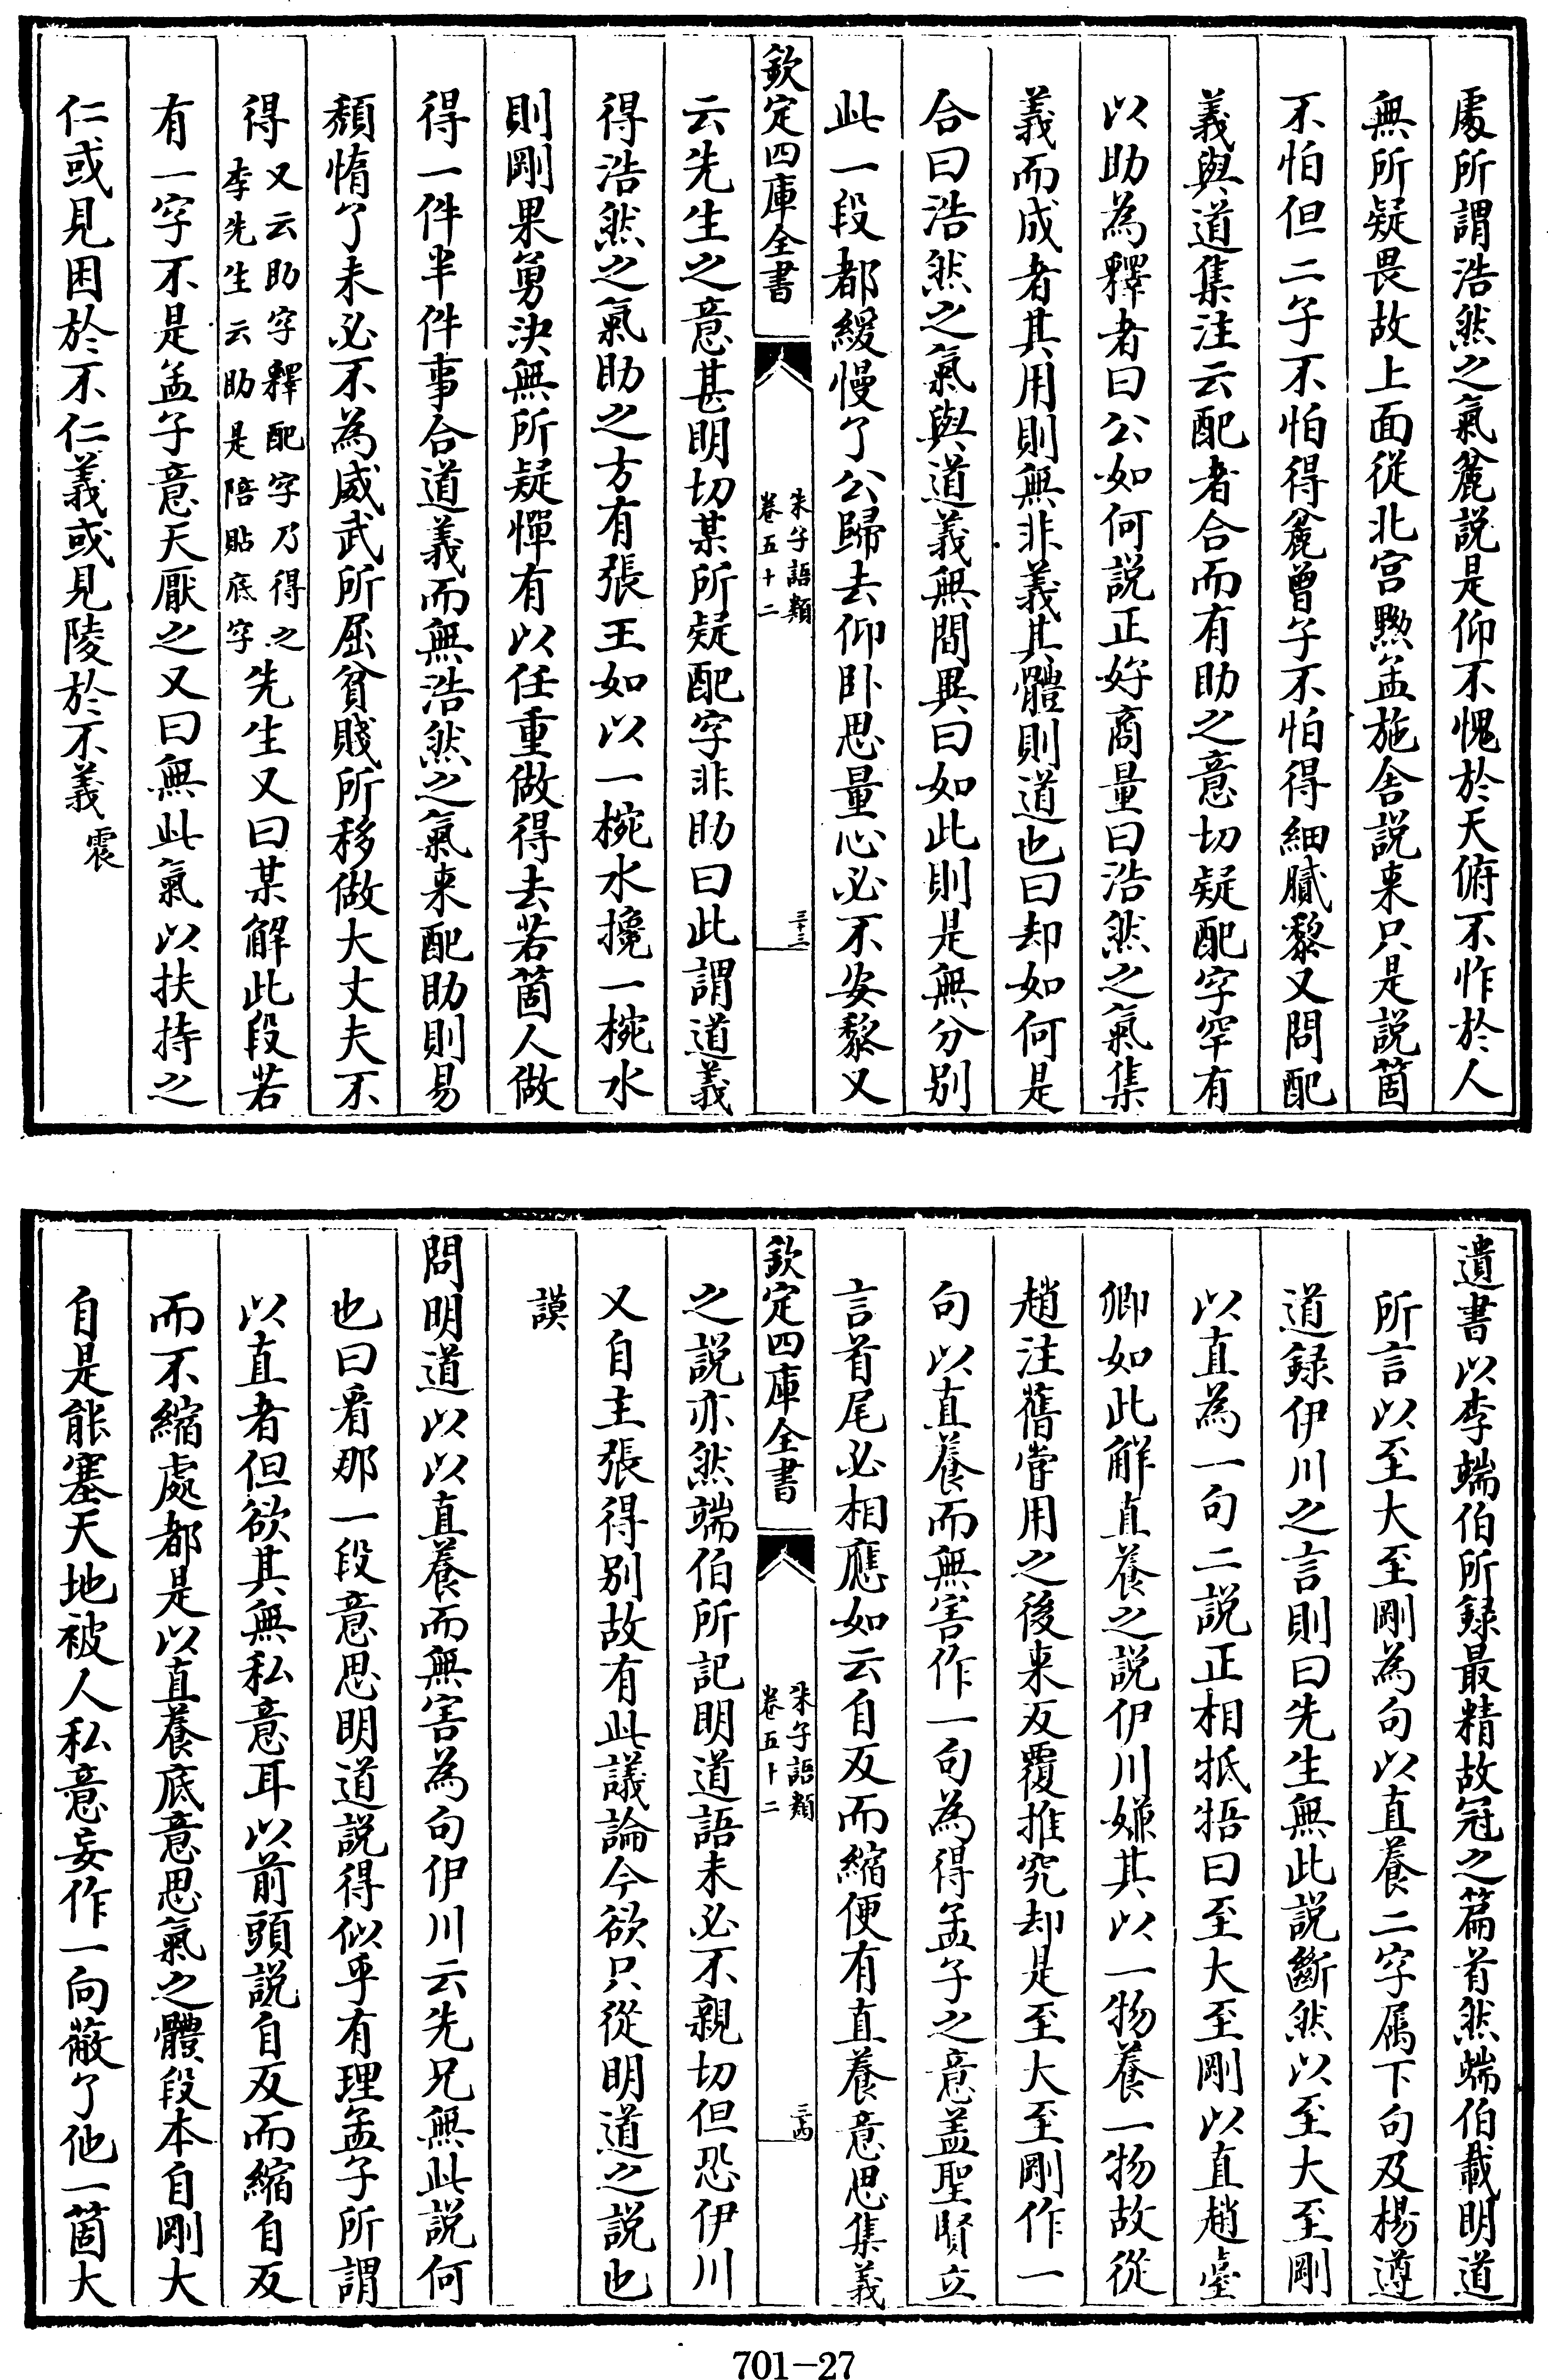 處所謂浩然之氣麄説是仰不愧於天俯不怍於人
無所疑畏故上面從北宫黝孟施舍説来只是説箇
不怕但二子不怕得麄曾子不怕得細膩黎又問配
義與道集注云配者合而有助之意切疑配字罕有
以助為釋者曰公如何説正好商量曰浩然之氣集
義而成者其用則無非義其體則道也曰却如何是
合曰浩然之氣與道義無間異曰如此則是無分别
此一段都緩慢了公歸去仰卧思量心必不安黎又
欽定四庫全書
朱子語類
卷五十二
三十三
云先生之意甚明切某所疑配字非助曰此謂道義
得浩然之氣助之方有張王如以一椀水攙一椀水
則剛果勇決無所疑憚有以任重做得去若箇人做
得一件半件事合道義而無浩然之氣来配助則易
頽惰了未必不為威武所屈貧賤所移做大丈夫不
得又云助字釋配字乃得之李先生云助是陪貼底字先生又曰某解此段若
有一字不是孟子意天厭之又曰無此氣以扶持之
仁或見困於不仁義或見陵於不義震
遺書以李端伯所録最精故冠之篇首然端伯載明道
所言以至大至剛為句以直養二字属下句及楊遵
道録伊川之言則曰先生無此説斷然以至大至剛
以直為一句二説正相牴牾曰至大至剛以直趙臺
卿如此解直養之説伊川嫌其以一物養一物故從
趙注舊嘗用之後来反覆推究却是至大至剛作一
句以直養而無害作一句為得孟子之意盖聖賢立
言首尾必相應如云自反而縮便有直養意思集義
欽定四庫全書
朱子語類
卷五十二
三四
之説亦然端伯所記明道語未必不親切但恐伊川
又自主張得别故有此議論今欲只從明道之説也
謨
問明道以以直養而無害為句伊川云先兄無此説何
也曰看那一段意思明道説得似乎有理孟子所謂
以直者但欲其無私意耳以前頭説自反而縮自反
而不縮處都是以直養底意思氣之體段本自剛大
自是能塞天地被人私意妄作一向蔽了他一箇大
701-27